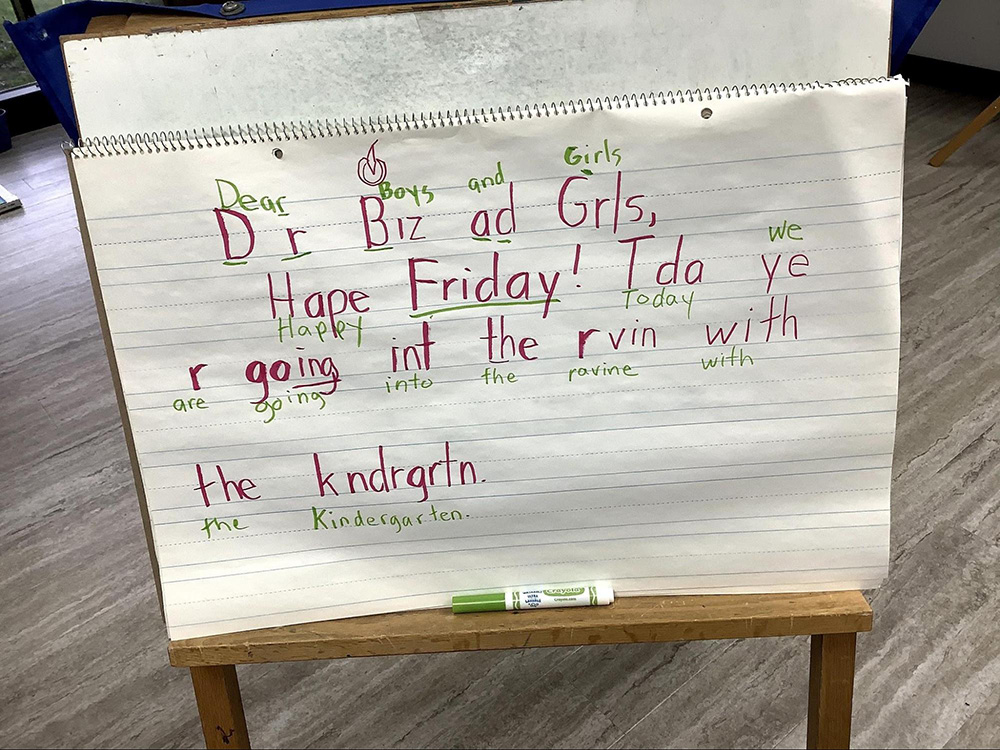 Dear Boys and Girls
D r Biz ad Grls,
we
Hape Friday! Tda ye
Happy Today
r going int the rvin with
are going into the ravine with
the kndrgrtn.
the Kindergarten.
Crayola